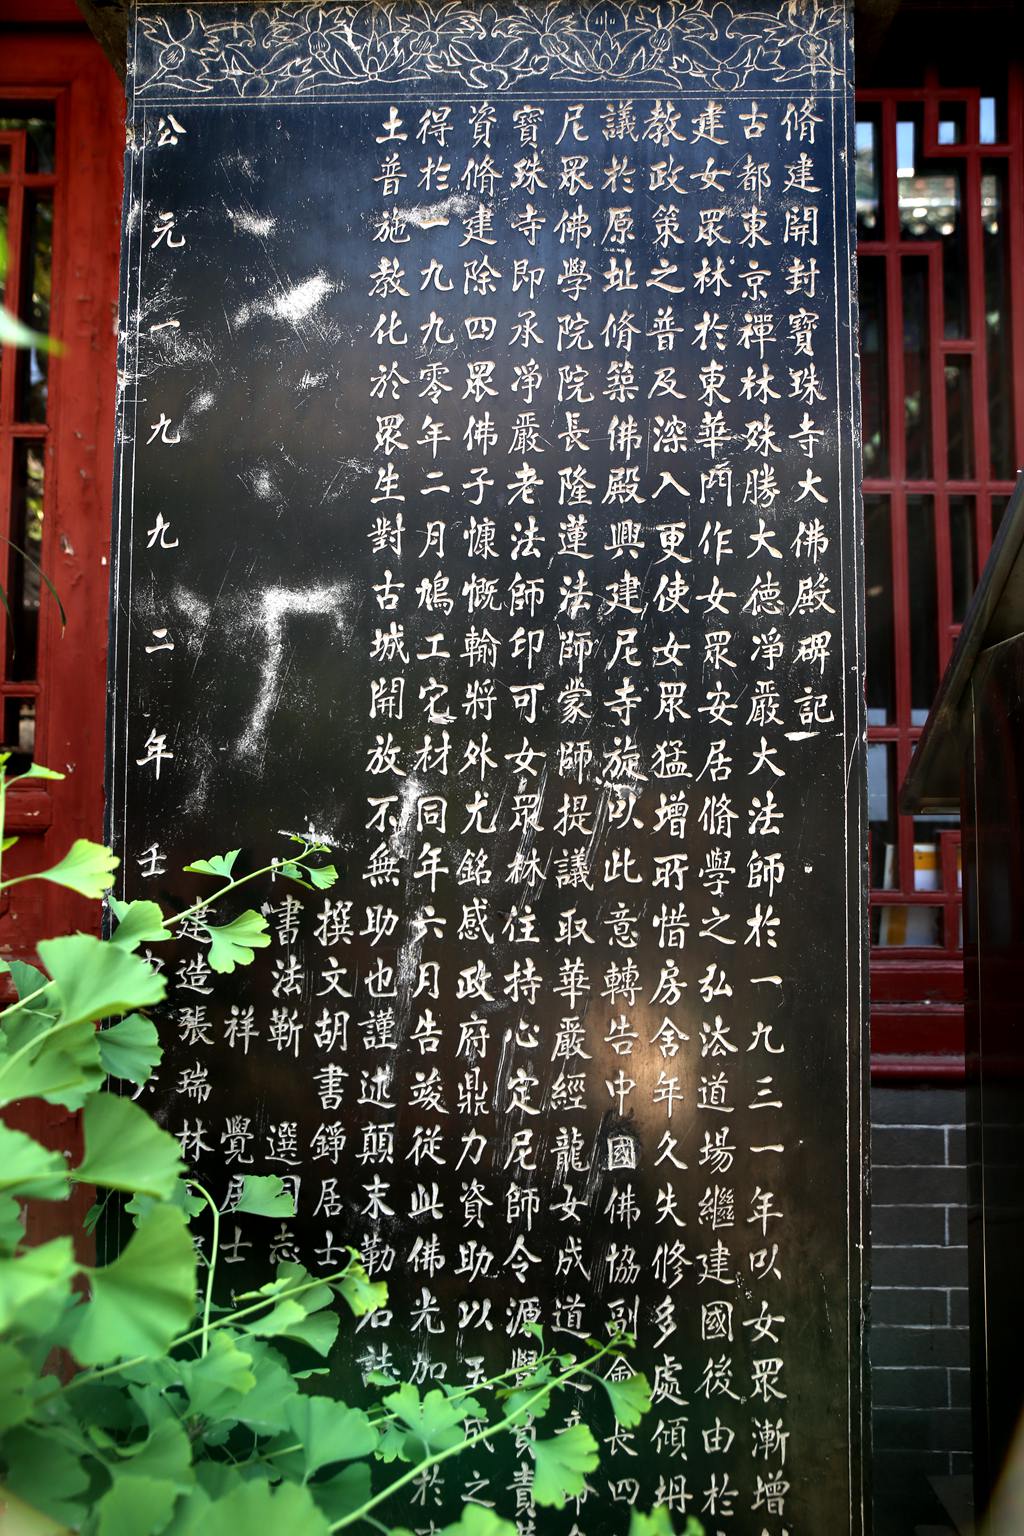 脩建開封寶珠寺大佛殿碑記
古都東京禪林殊勝大德淨嚴大法師於一九三一年以女眾漸增
建女眾林於東華門作女眾安居脩學之弘法道場繼建國後由於
教政策之普及深入更使女眾猛增所惜房舍年久失修多處傾坍
議於原址脩築佛殿興建尼寺旋以此意轉告中國佛協副會長四
尼眾佛學院院長隆蓮法師蒙師提議取華嚴經龍女成道之意
寶珠寺即承淨嚴老法師印可女眾林住持心定尼師令源覺負責
資脩建除四眾佛子慷慨輸將外尤銘感政府鼎力資助以玉成之
得於一九九零年二月鳩工它材同年六月告竣從此佛光加於
土普施教化於眾生對古城開放不無助也謹述顛末勒石誌
撰文胡書錚居士
書法靳選同志
祥覺居士
建造張瑞林
公元一九九二年壬